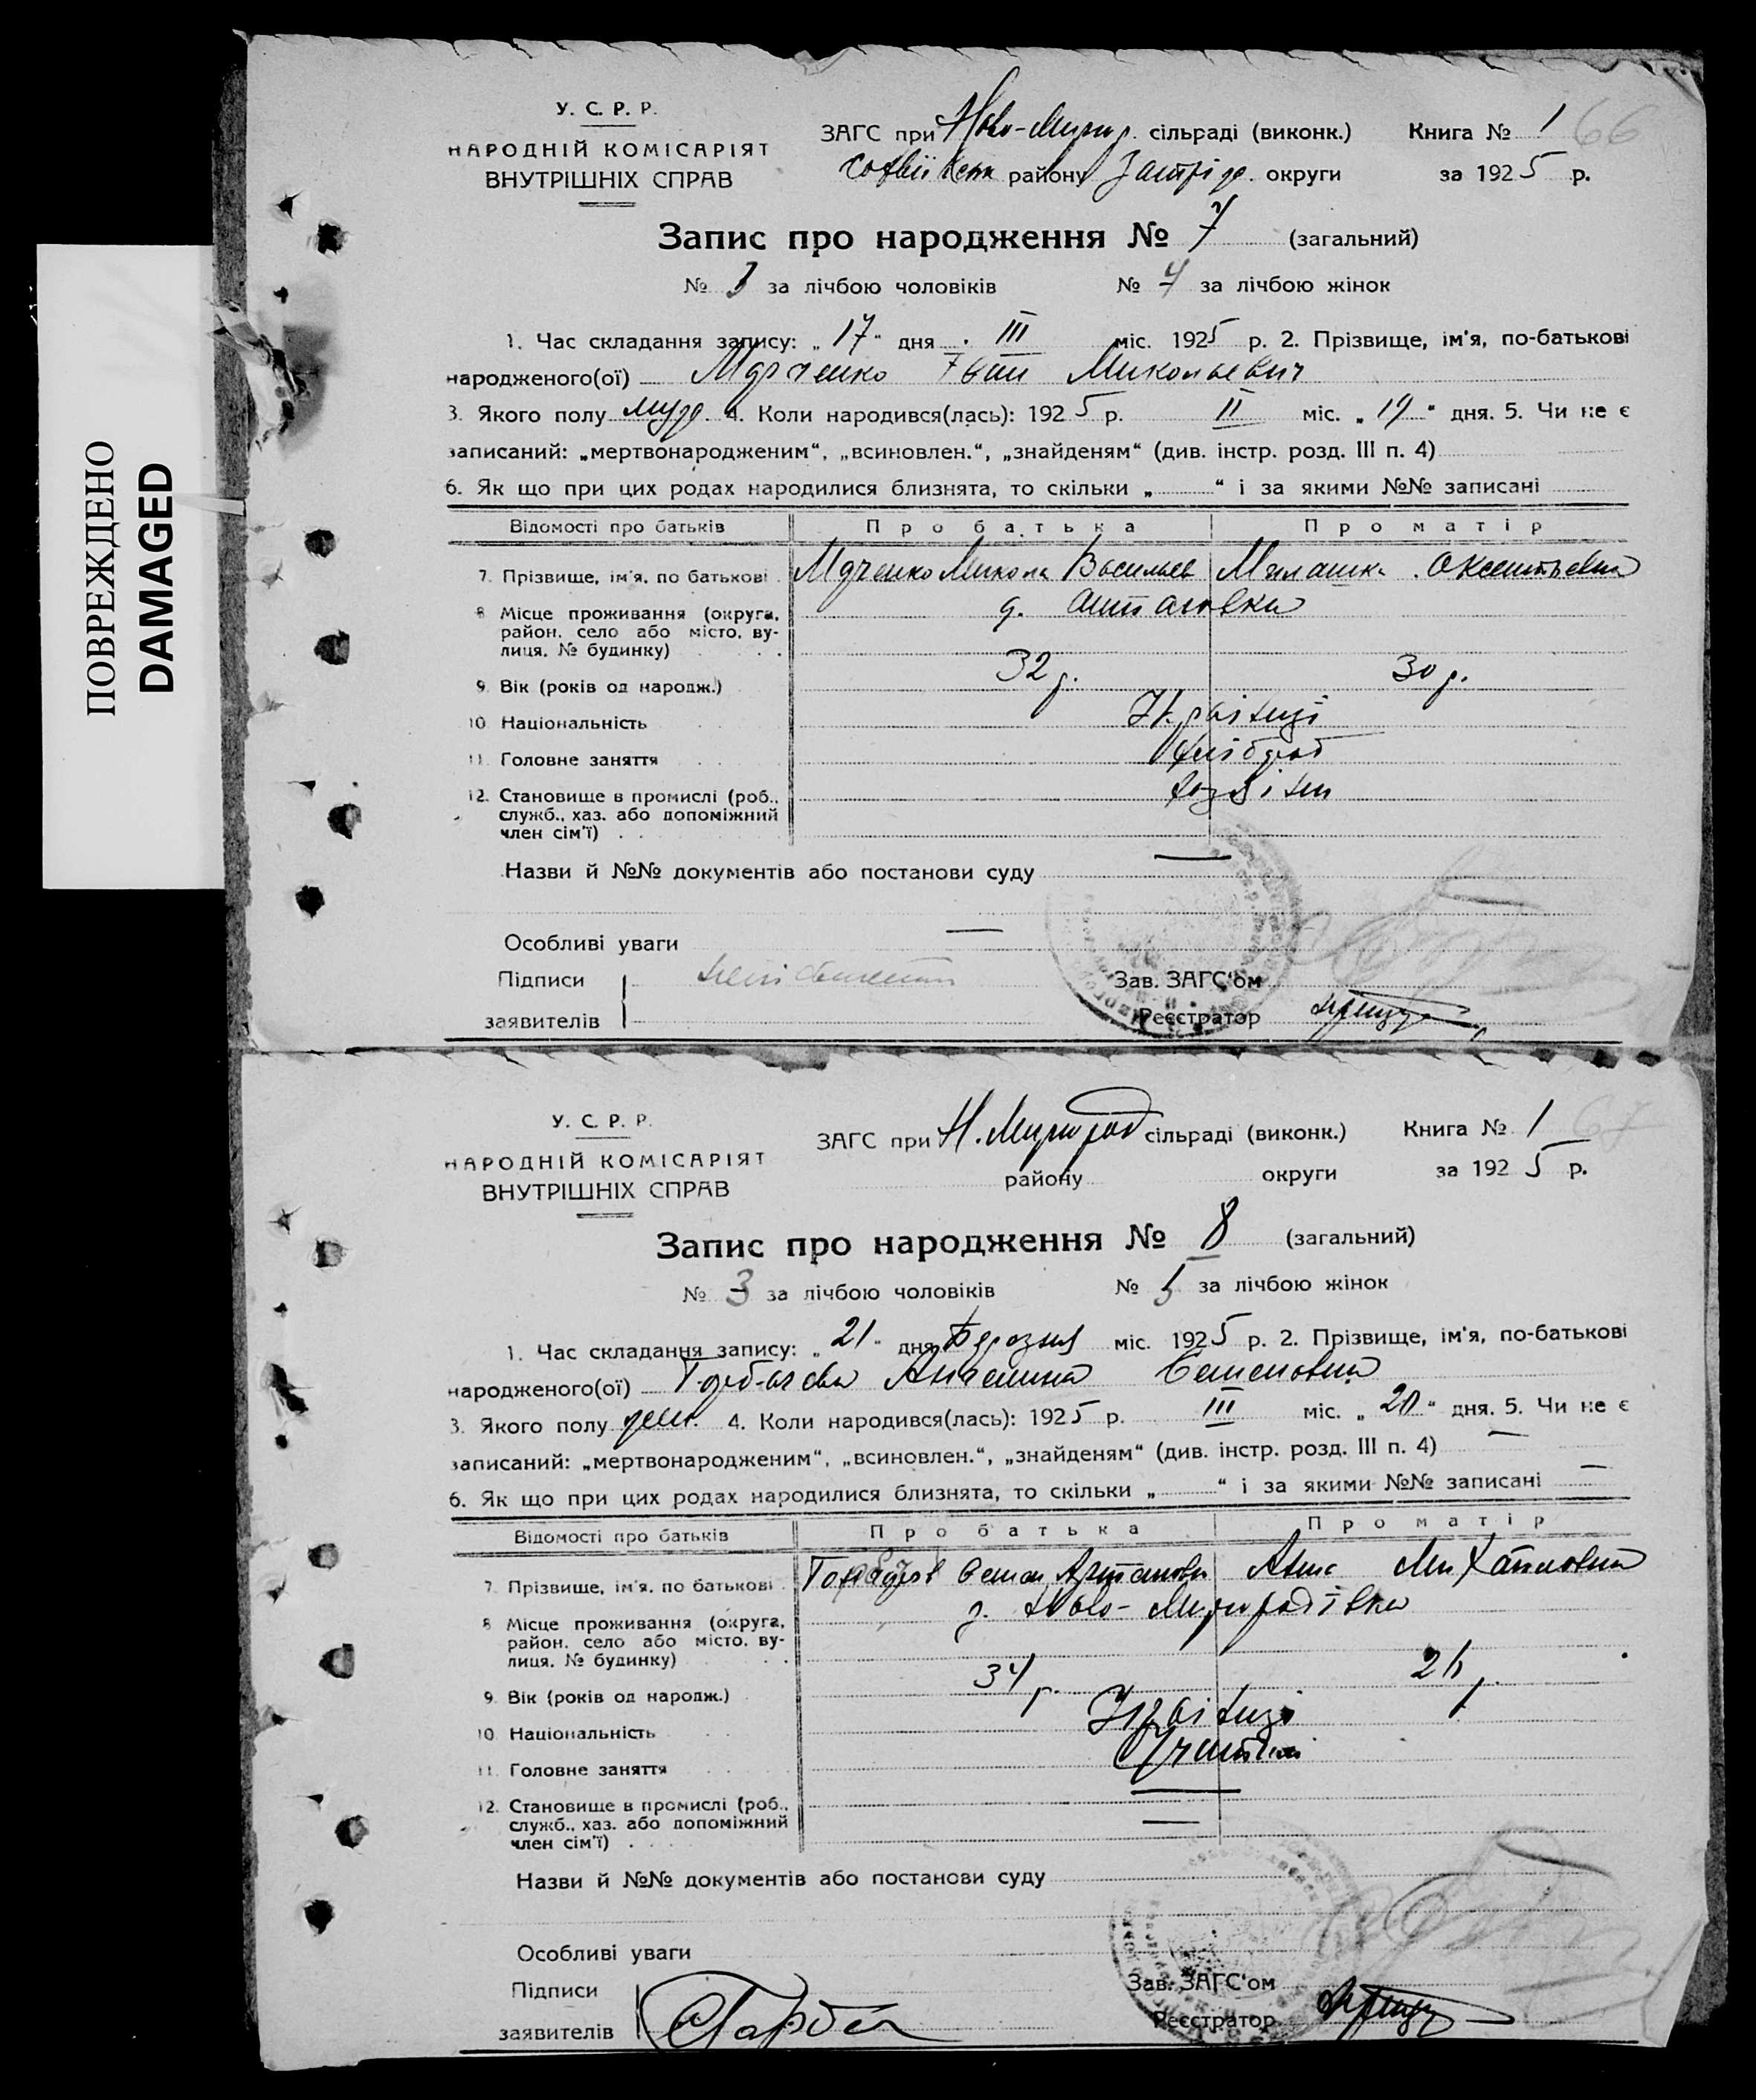 ПОВРЕЖДЕНО
DAMAGED
У. С. Р. Р.
НАРОДНІЙ КОМІСАРІЯТ
ВНУТРІШНІХ СПРАВ
ЗАГС при Ново-Миргор. сільраді (виконк.)
району округи
Книга № 1 66
за 1925 р.
Запис про народження № 7 (загальний)
№ 3 за лічбою чоловіків № 4 за лічбою жінок
1. Час складання запису: „17“ дня III міс. 1925 р. 2. Прізвище, ім'я, по-батькові
народженого(ої) Іван Миколаевич
3. Якого полу муж. 4. Коли народився(лась): 1925 р. II міс. „19“ дня. 5. Чи не є
записаний: „мертвонародженим“, „всиновлен.“, „знайденям“ (див. інстр. розд. III п. 4)
6. Як що при цих родах народилися близнята, то скільки „ “ і за якими №№ записані
Відомості про батьків Про батька Про матір
7. Прізвище, ім'я, по батькові Микола Васильев
8 Місце проживання (округа,
район, село або місто, ву-
лиця, № будинку)
9. Вік (років од народж.) 32 р. 30 р.
10 Національність Українці
11. Головне заняття хлібороб
12. Становище в промислі (роб.,
служб., хаз. або допоміжний
член сім'ї)
Назви й №№ документів або постанови суду
Особливі уваги
Підписи
заявителів
Зав. ЗАГС'ом
Реєстратор
У. С. Р. Р.
НАРОДНІЙ КОМІСАРІЯТ
ВНУТРІШНІХ СПРАВ
ЗАГС при Н. Миргород сільраді (виконк.)
району округи
Книга № 1 67
за 1925 р.
Запис про народження № 8 (загальний)
№ 3 за лічбою чоловіків № 5 за лічбою жінок
1. Час складання запису: „21“ дня Березня міс. 1925 р. 2. Прізвище, ім'я, по-батькові
народженого(ої) Горбачева Семеновна
3. Якого полу жен. 4. Коли народився(лась): 1925 р. III міс. „20“ дня. 5. Чи не є
записаний: „мертвонародженим“, „всиновлен.“, „знайденям“ (див. інстр. розд. III п. 4)
6. Як що при цих родах народилися близнята, то скільки „ “ і за якими №№ записані
Відомості про батьків Про батька Про матір
7. Прізвище, ім'я, по батькові Горбачев Семен Анна Михайловна
8 Місце проживання (округа,
район, село або місто, ву-
лиця, № будинку)
9. Вік (років од народж.) 34 р.
10 Національність Українці
11. Головне заняття
12. Становище в промислі (роб.,
служб., хаз. або допоміжний
член сім'ї)
Назви й №№ документів або постанови суду
Особливі уваги
Підписи
заявителів
Зав. ЗАГС'ом
Реєстратор